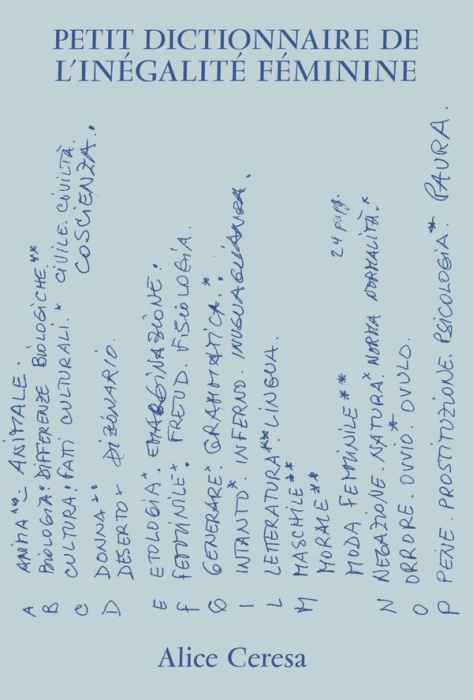 PETIT DICTIONNAIRE DE
L'INÉGALITÉ FÉMININE
A ANIMA** – ANIMALE.
B BIOLOGIA. DIFFERENZE BIOLOGICHE.**
C CULTURA. FATTI CULTURALI.* CIVILE. CIVILTÀ.
COSCIENZA.
D DONNA**
DESERTO* DIZIONARIO.
E ETOLOGIA* EMARGINAZIONE.
F FEMMINILE* FREUD. FISIOLOGIA.
G GENERARE* GRAMMATICA.*
I INTANTO* INFERNO. INUGUAGLIANZA.
L LETTERATURA** LINGUA.
M MASCHILE**
MORALE**
MODA FEMMINILE**
24
N NEGAZIONE. NATURA* NORMA NORMALITÀ.*
O ORRORE. OVVIO* OVULO.
P PENE. PROSTITUZIONE. PSICOLOGIA.* PAURA.
Alice Ceresa